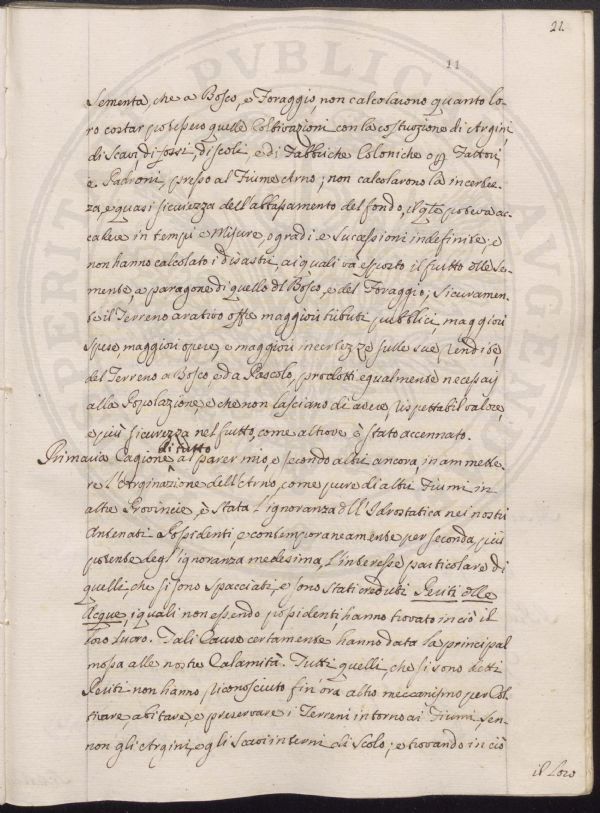 21.
11
Sementa, che a Bosco, e Foraggio, non calcolarono quanto lo-
ro costar potessero quelle Coltivazioni con la costruzione di Argini,
di Scavi di fossi, di scoli, e di Fabbriche Coloniche o Fattori,
e Padroni, presso al Fiume Arno; non calcolarono la incertez-
za, e quasi sicurezza dell'abbassamento del fondo, il qle poteva ac-
cadere in tempi e misure, o gradi e Successioni indefinite; e
non hanno calcolato i disastri, ai quali và esposto il frutto delle Se-
mente, a paragone di quello del Bosco, e del Foraggio; Sicuramen-
te il Terreno arativo offre maggiori tributi pubblici, maggiori
spese, maggiori opere, e maggiori incertezze sulle sue rendite
del Terreno a Bosco e da Pascolo, prodotti egualmente necessarj
alla Popolazione, e che non lasciano di avere, rispettabil valore,
e più sicurezza nel frutto, come altrove è stato accennato.
di tutto
Primaria Cagione al parer mio, e secondo altri ancora, in ammette-
re l'Arginazione dell'Arno, come pure di altri Fiumi in
altre Provincie, è stata l'ignoranza dell'Idrostatica nei nostri
Antenati Possidenti, e contemporaneamente per seconda, più
potente degl'ignoranza medesima, l'interesse particolare di
quelli, che si sono spacciati, e sono stati creduti Periti delle
Acque, i quali non essendo possidenti hanno trovato in ciò il
loro Lucro. Tali Cause certamente hanno data la principal
mossa alle nostre Calamità. Tutti quelli, che si sono detti
Periti non hanno riconosciuto fin'ora altro meccanismo per Col-
tivare, abitare, e preservare i Terreni intorno ai Fiumi, sen-
non gli Argini, e gli Scavi interni di Scolo; e trovando in ciò
il Loro